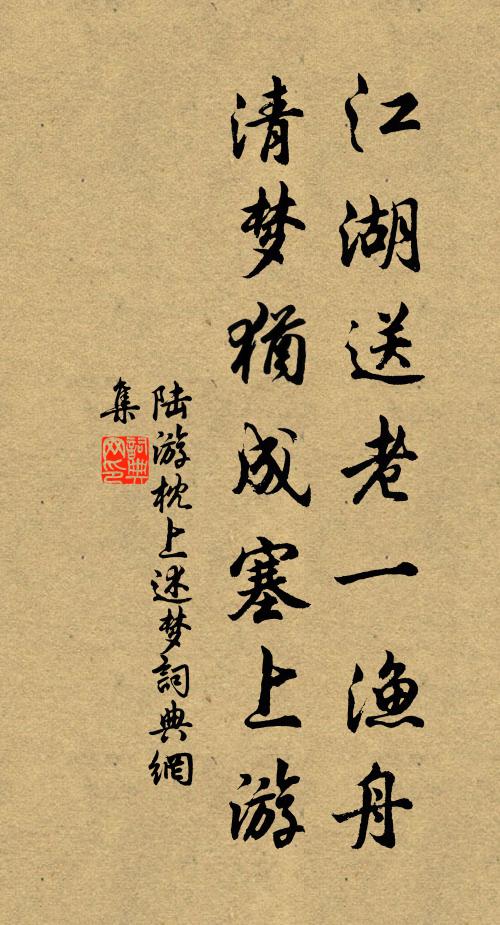 江湖送老一渔舟
清梦犹成塞上游
陆游枕上述梦詞典網
集
詞典网印